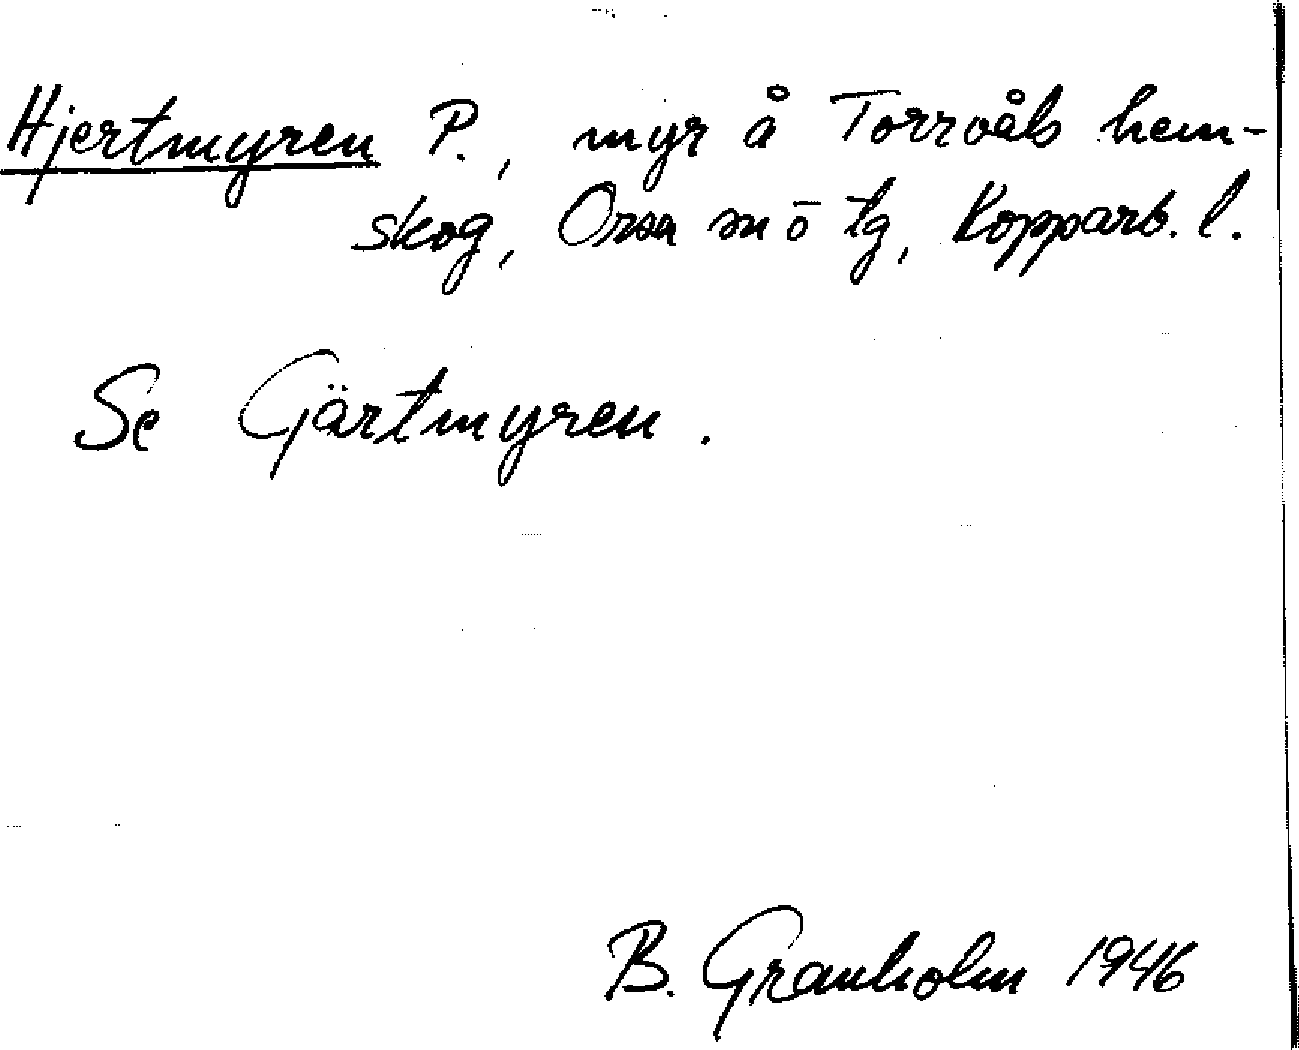 Hjertmyren P., myr å Torrvåls hem-
skog, Orsa sn ö tg, Kopparb. l.
Se Gärtmyren.
B. Granholm 1946